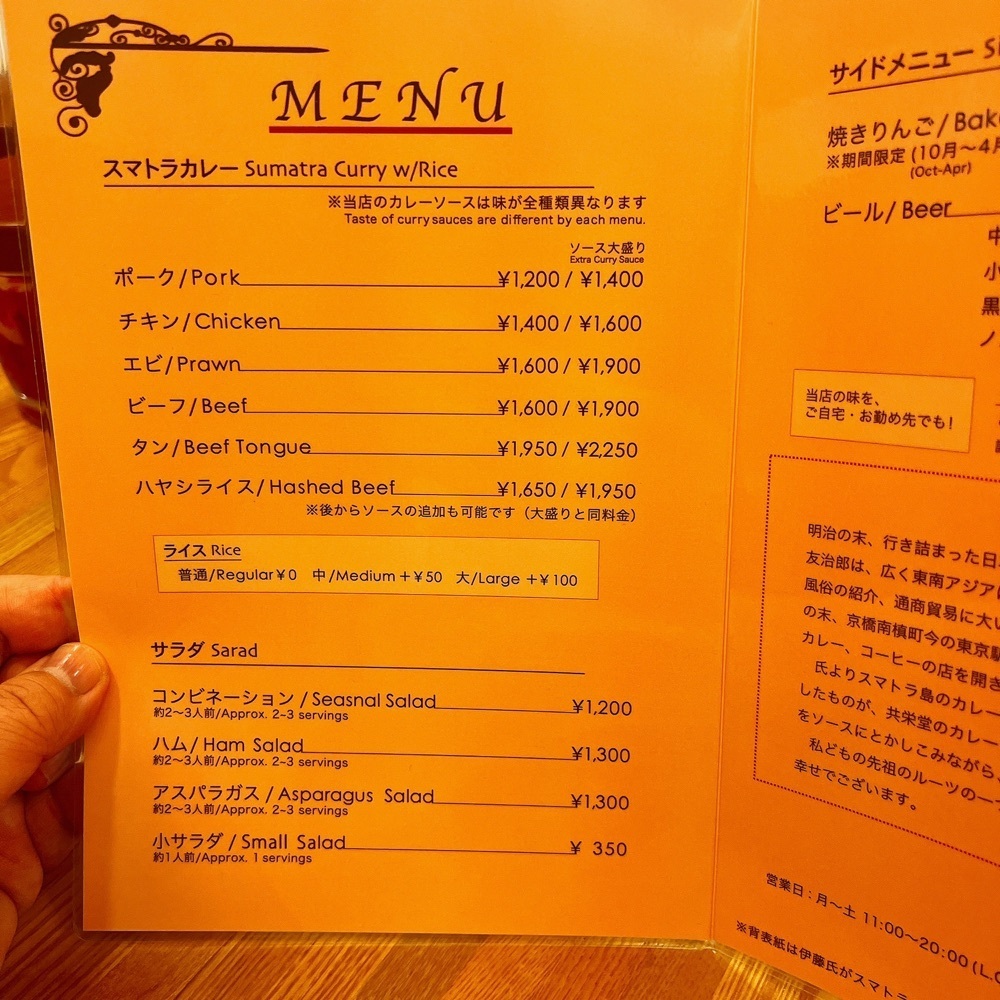 MENU
スマトラカレー Sumatra Curry w/Rice
※当店のカレーソースは味が全種類異なります
Taste of curry sauces are different by each menu.
ソース大盛り
Extra Curry Sauce
ポーク/Pork ¥1,200 / ¥1,400
チキン/Chicken ¥1,400 / ¥1,600
エビ/Prawn ¥1,600 / ¥1,900
ビーフ/Beef ¥1,600 / ¥1,900
タン/Beef Tongue ¥1,950 / ¥2,250
ハヤシライス/Hashed Beef ¥1,650 / ¥1,950
※後からソースの追加も可能です（大盛りと同料金）
ライス Rice
普通/Regular¥0 中/Medium+¥50 大/Large +¥100
サラダ Sarad
コンビネーション/Seasnal Salad ¥1,200
約2〜3人前/Approx. 2-3 servings
ハム/Ham Salad ¥1,300
約2〜3人前/Approx. 2-3 servings
アスパラガス/Asparagus Salad ¥1,300
約2〜3人前/Approx. 2-3 servings
小サラダ/Small Salad ¥ 350
約1人前/Approx. 1 servings
サイドメニュー
焼きりんご/Bak
※期間限定 (10月〜4月
(Oct-Apr)
ビール/Beer
中
小
黒
ノ
当店の味を、
ご自宅・お勤め先でも!
明治の末、行き詰まった日
友治郎は、広く東南アジア
風俗の紹介、通商貿易に大い
の末、京橋南槙町今の東京駅
カレー、コーヒーの店を開き
氏よりスマトラ島のカレー
したものが、共栄堂のカレー
をソースにとかしこみながら、
私どもの先祖のルーツの一
幸せでございます。
営業日:月〜土 11:00〜20:00 (L.O
※背表紙は伊藤氏がスマトラ